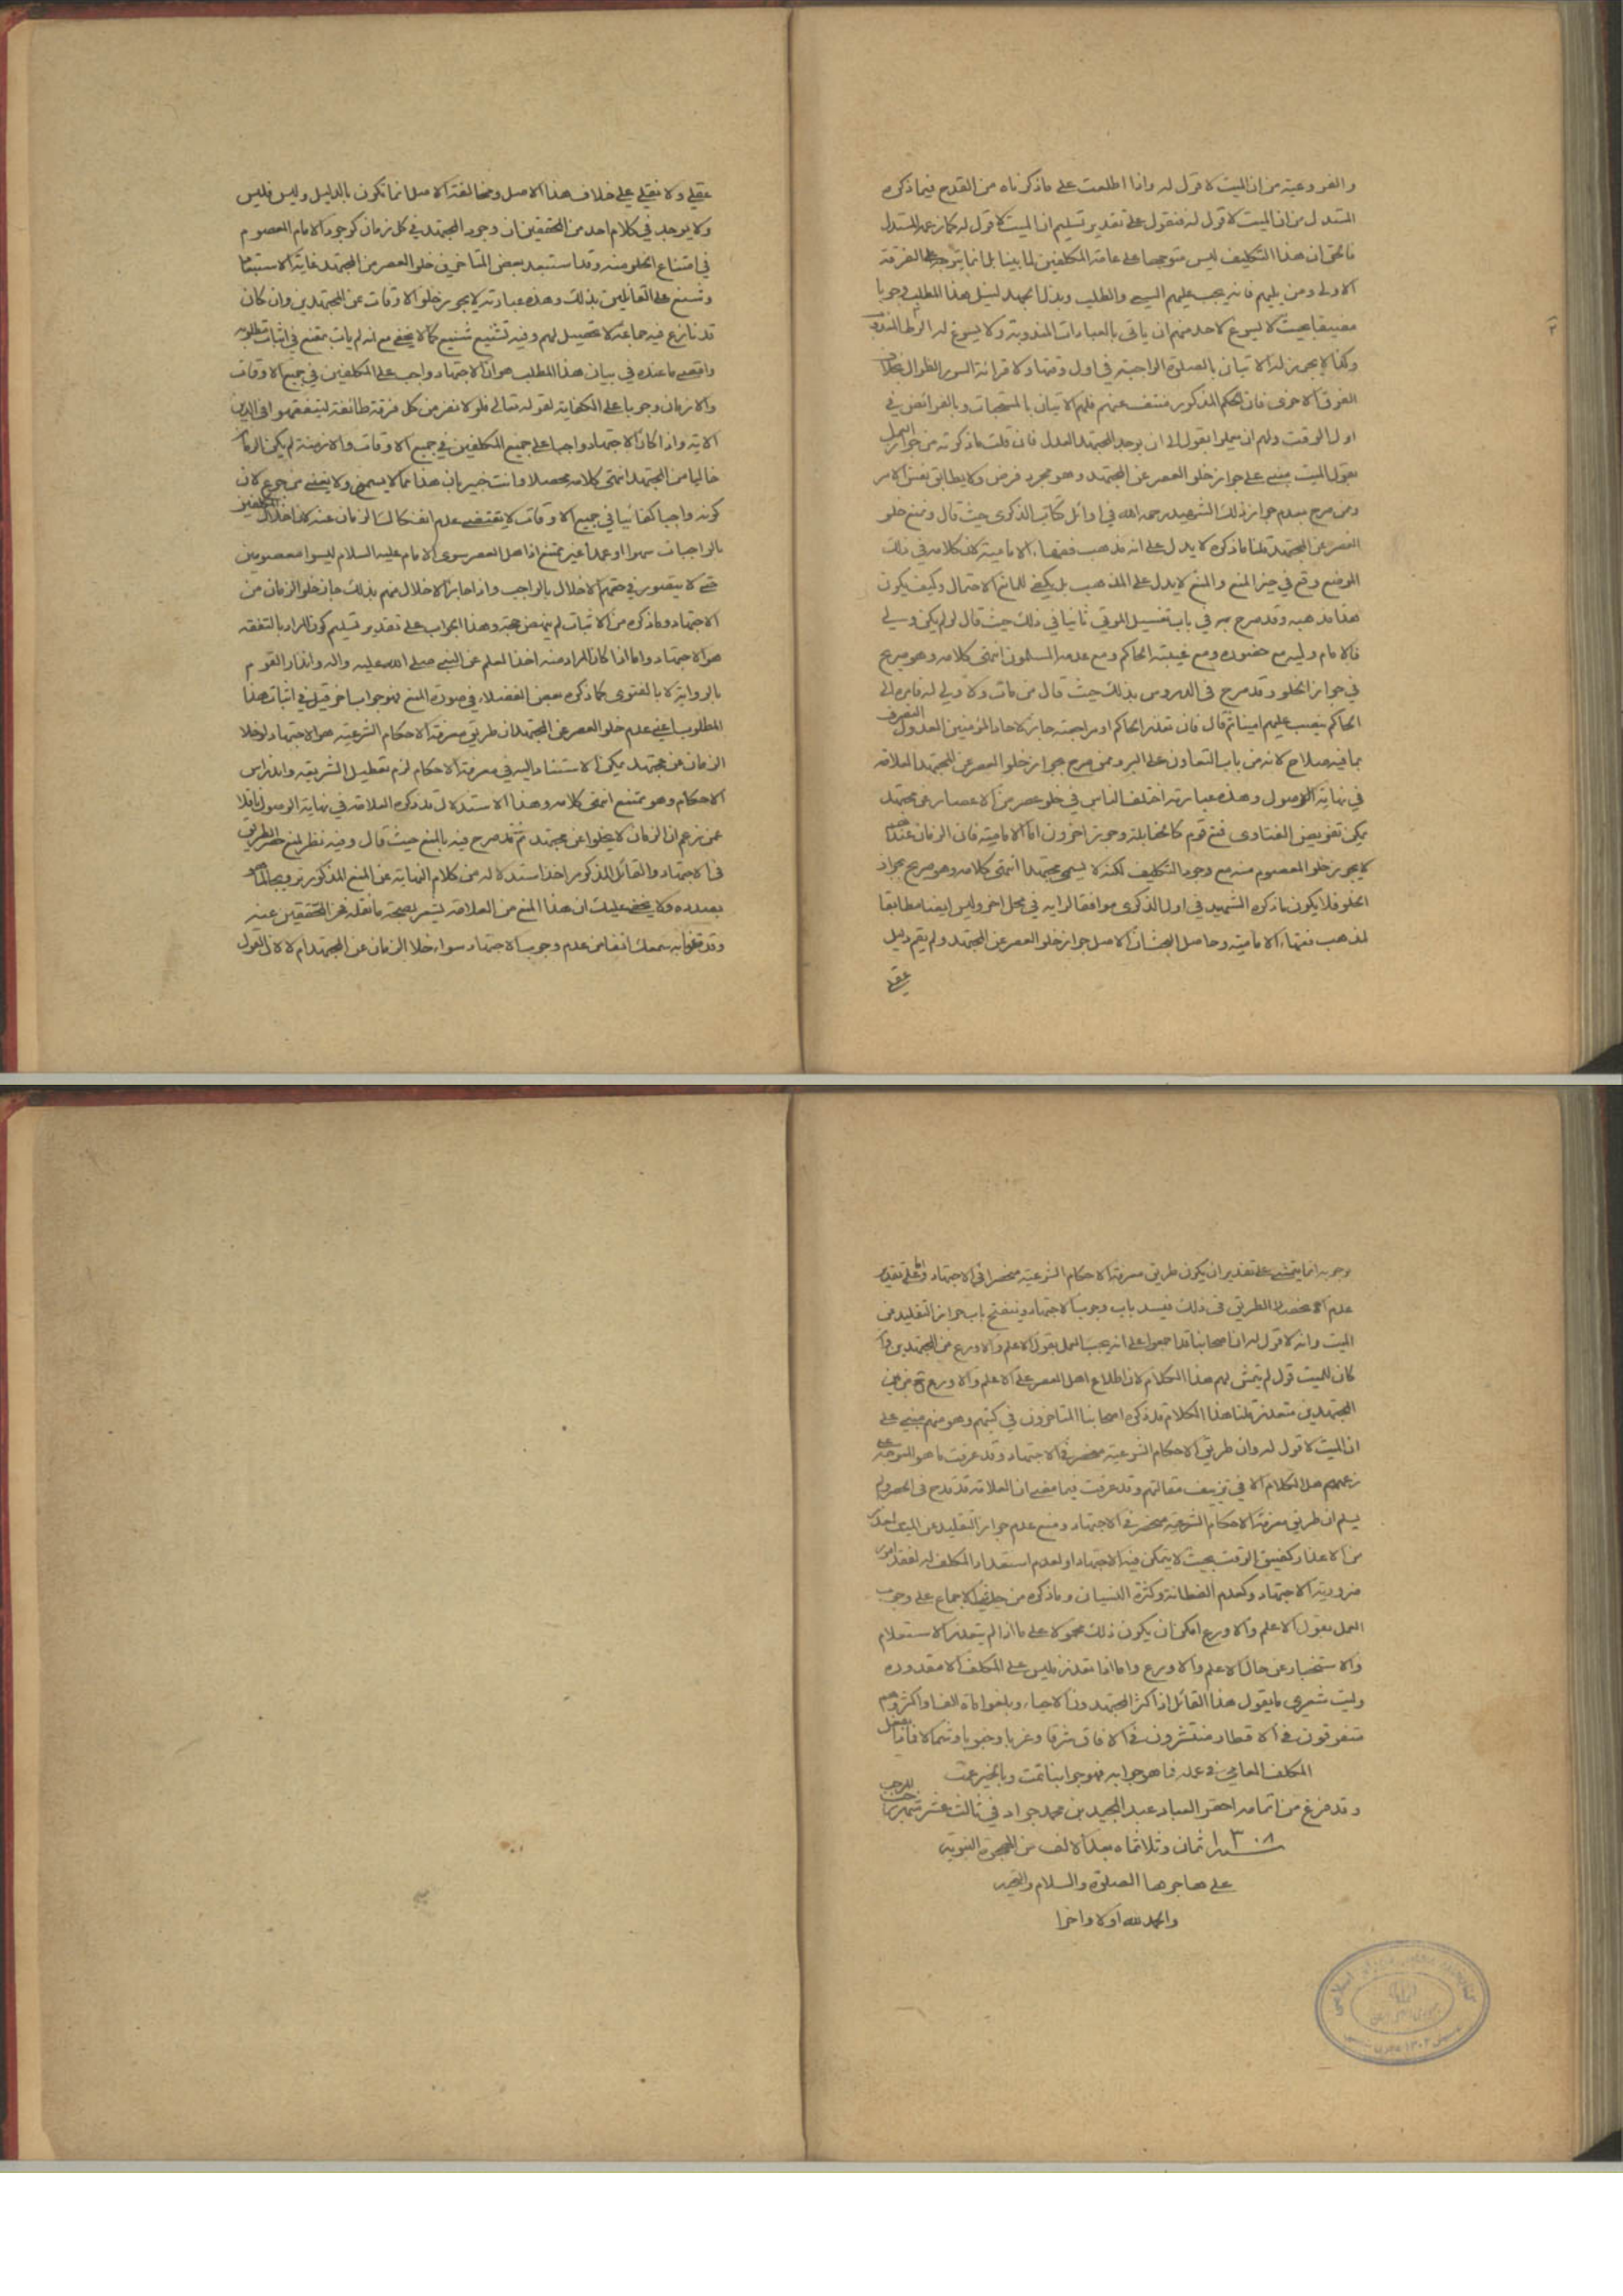 والفروعية من ان الميت لا قول له واذا اطلعت على ما ذكرناه من القدح فيما ذكره
المستدل من ان الميت لا قول له فنقول على تقدير تسليم ان الميت لا قول له كما زعمه المستدل
فالحق ان هذا التكليف ليس متوجها على عامة المكلفين لما بينا بل انما يتوجه على الفرقة
الاولى ومن يليهم فانه يجب عليهم السعي والطلب وبذل الجهد لنيل هذا المطلب وجوبا
مضيقا بحيث لا يسوغ لاحد منهم ان ياتي بالعبادات المندوبة ولا يسوغ له
وكذا لا يجوز له الاتيان بالصلوة الواجبة في اول وقتها ولا قرائة السور الطوال بخلاف
الفرق الاخرى فان الحكم المذكور منتف عنهم فلهم الاتيان بالمستحبات وبالفرائض في
اول الوقت ولهم ان يعملوا بقول الى ان يوجد المجتهد العدل فان قلت ما ذكرته من جواز العمل
بقول الميت مبني على جواز خلو العصر عن المجتهد وهو مجرد فرض ولا يطابق نفس الامر
وممن صرح بعدم جواز ذلك الشهيد رحمه الله في اوائل كتاب الذكرى حيث قال ومنع خلو
العصر عن المجتهد قلنا ما ذكره لا يدل على انه مذهب فقهاء الامامية كلامه في ذلك
الموضع وقع في حيز المنع والمنع لا يدل على المذهب بل يكفي للمانع الاحتمال وكيف يكون
هذا مذهبه وقد صرح به في باب تغسيل الموتى ثانيا في ذلك حيث قال لو لم يكن ولي
فالامام وليه مع حضوره ومع غيبته الحاكم ومع عدمه المسلمون انتهى كلامه وهو صريح
في جواز الخلو وقد صرح في الدروس بذلك حيث قال من مات ولا ولي له فامره الى
الحاكم ينصب عليهم امينا ثم قال فان تعذر الحاكم او مراجعته جاز لاحاد المؤمنين العدول التصرف
بما فيه صلاح لانه من باب التعاون على البر وممن صرح بجواز خلو العصر عن المجتهد العلامة
في نهاية الوصول وهذه عبارته اختلف الناس في خلو عصر من الاعصار عن مجتهد
يمكن تفويض الفتاوى فمنع قوم كالحنابلة وجوز اخرون اما الامامية فان الزمان عندهم
لا يجوز خلو المعصوم منه مع وجود التكليف لكنه لا يسمى مجتهدا انتهى كلامه وهو صريح بجواز
الخلو فلا يكون ما ذكره الشهيد في اول الذكرى موافقا لرايه في محل اخر وليس ايضا مطابقا
لمذهب فقهاء الامامية وحاصل البحث ان الاصل جواز خلو العصر عن المجتهد ولم يقم دليل
عقلي
عقلي ولا نقلي على خلاف هذا الاصل ومخالفة الاصل انما تكون بالدليل وليس فليس
ولا يوجد في كلام احد من المحققين ان وجود المجتهد في كل زمان كوجود الامام المعصوم
في امتناع الخلو منه وقد استبعد بعض المتاخرين خلو العصر من المجتهد غاية الاستبعاد
وشنع على القائلين بذلك وهذه عبارته لا يجوز خلو الاوقات عن المجتهدين وان كان
قد نازع فيه جماعة لا تحصيل لهم وفيه تشنيع شنيع كما لا يخفى مع انه لم يات بمقنع في اثبات مطلوبه
واقصى ما عنده في بيان هذا المطلب هو ان الاجتهاد واجب على المكلفين في جميع الاوقات
والازمان وجوبا على الكفاية لقوله تعالى فلولا نفر من كل فرقة طائفة ليتفقهوا في الدين
الاية واذا كان الاجتهاد واجبا على جميع المكلفين في جميع الاوقات والازمنة لم يكن الزمان
خاليا من المجتهد انتهى كلامه محصلا وانت خبير بان هذا مما لا يسمن ولا يغني من جوع لان
كونه واجبا كفائيا في جميع الاوقات لا يقتضي عدم انفكاك الزمان عنه لان اخلال المكلفين
بالواجبات سهوا او عمدا غير ممتنع اذ اهل العصر سوى الامام عليه السلام ليسوا معصومين
حتى لا يتصور في حقهم الاخلال بالواجب واذا جاز الاخلال منهم بذلك جاز خلو الزمان من
الاجتهاد وما ذكره من الاثبات لم ينهض حجة وهذا الجواب على تقدير تسليم كون المراد بالتفقه
هو الاجتهاد واما اذا كان المراد منه اخذ العلم عن النبي صلى الله عليه واله وانذار القوم
بالرواية لا بالفتوى كما ذكره بعض الفضلاء في صورة المنع فهو جواب اخر قيل في اثبات هذا
المطلوب اعني عدم خلو العصر عن المجتهد ان طريق معرفة الاحكام الشرعية هو الاجتهاد لو خلا
الزمان عن مجتهد يمكن الاستناد اليه في معرفة الاحكام لزم تعطيل الشريعة واندراس
الاحكام وهو ممتنع انتهى كلامه وهذا الاستدلال قد ذكره العلامة في نهاية الوصول نقلا
عمن زعم ان الزمان لا يخلوا عن مجتهد ثم قد صرح فيه بالمنع حيث قال وفيه نظر لمنع حصر الطريق
في الاجتهاد والقائل المذكور اخذ استدلاله من كلام النهاية عن المنع المذكور ترويجا لما هو
بصدده ولا يخفى عليك ان هذا المنع من العلامة يشعر بصحة ما نقله فخر المحققين عنه
وقد سمعك انفا من عدم وجوب الاجتهاد سواء خلا الزمان عن المجتهد ام لا لان القول
بوجوبه انما يتمشى على تقدير ان يكون طريق معرفة الاحكام الشرعية منحصرا في الاجتهاد واما على تقدير
عدم انحصار الطريق في ذلك فيسد باب وجوب الاجتهاد وينفتح باب جواز التقليد من
الميت وانه لا قول له ان اصحابنا قد اجمعوا على انه يجب العمل بقول الاعلم والاورع من المجتهدين ولو
كان للميت قول لم يتمش لهم هذا الكلام لان اطلاع اهل العصر على الاعلم والاورع
المجتهدين متعذر قلنا هذا الكلام قد ذكره اصحابنا المتاخرون في كتبهم وهو منهم مبني على
ان الميت لا قول له وان طريق الاحكام الشرعية منحصر في الاجتهاد وقد عرفت ما هو المتوجه على
زعمهم هذا الكلام الا في تزييف مقالتهم وقد عرفت فيما مضى ان العلامة قد قدح في الحصر ولم
يسلم ان طريق معرفة الاحكام الشرعية منحصر في الاجتهاد ومنع عدم جواز التقليد عن الميت
من الاعذار كضيق الوقت بحيث لا يتمكن فيه الاجتهاد او لعدم استعداد المكلف له لفقد امور
ضرورية الاجتهاد وكعدم الفطانة وكثرة النسيان وما ذكره من الاجماع على وجوب
العمل بقول الاعلم والاورع امكن ان يكون ذلك محمولا على ما اذا لم يتعذر الاستعلام
والاستخبار عن حال الاعلم والاورع واما اذا تعذر فليس على المكلف الا مقدوره
وليت شعري ما يقول هذا القائل اذا كثر المجتهدون الاحياء وبلغوا مائة الف او اكثر وهم
متفرقون في الاقطار منتشرون في الافاق شرقا وغربا وجنوبا وشمالا فاذا يفعل
المكلف العامي في عمله فما هو جوابه فهو جوابنا تمت وبالخير عمت
وقد فرغ من اتمامه احقر العباد عبد المجيد بن محمد جواد في ثالث عشر شهر رجب المرجب
سنه ١٣٠٨ ثمان وثلاثماه بعد الالف من الهجرة النبوية
على هاجرها الصلوة والسلام والتحية
والحمد لله اولا واخرا